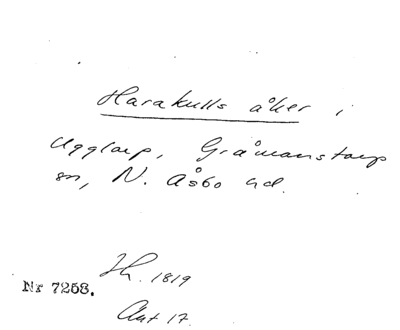 Harakulls åker i
Ugglarp, Gråmanstorp
sn, N. Åsbo hd.
Nr 7258.
Jh. 1819
Akt 17.